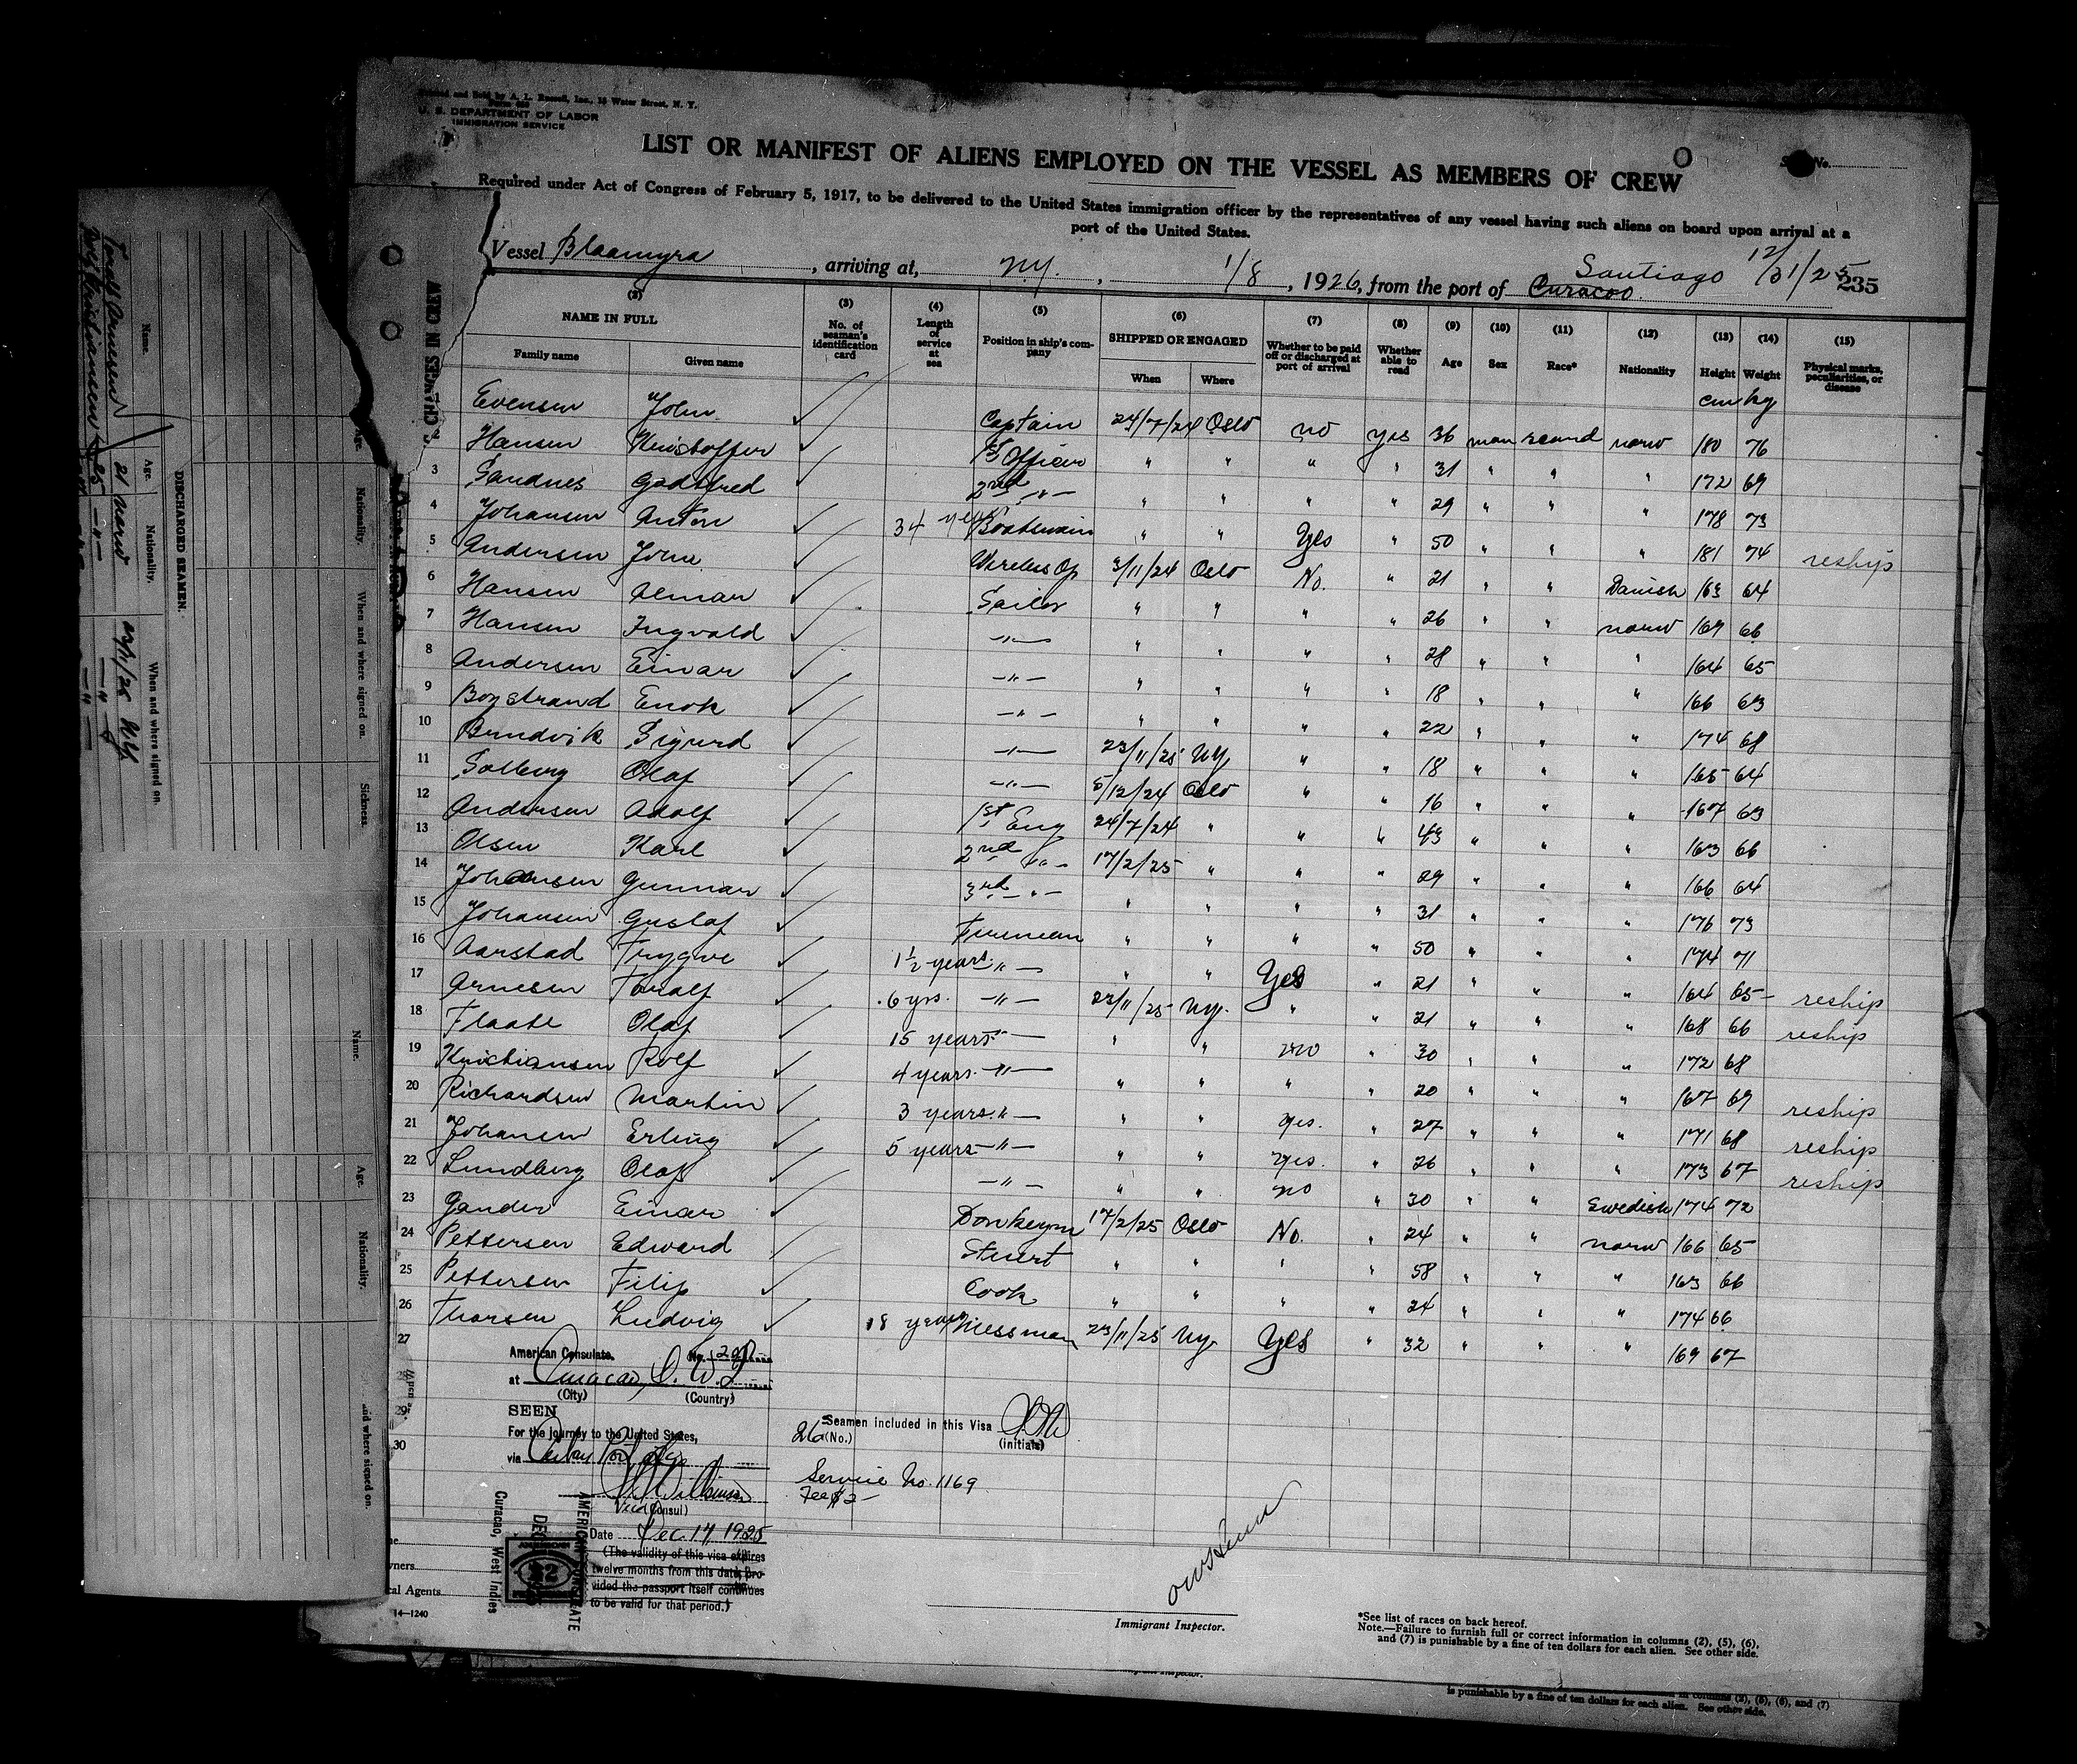 Printed and Sold by A. L. Russell, Inc., 16 Water Street, N. Y.
U. S. DEPARTMENT OF LABOR
IMMIGRATION SERVICE
LIST OR MANIFEST OF ALIENS EMPLOYED ON THE VESSEL AS MEMBERS OF CREW
Required under Act of Congress of February 5, 1917, to be delivered to the United States immigration officer by the representatives of any vessel having such aliens on board upon arrival at a
port of the United States.
Vessel Blaamyra, arriving at, N.Y., 1/8, 1926, from the port of Curacoo. Santiago 12/31/25 235
(2) NAME IN FULL (3) No. of seaman's identification card (4) Length of service at sea (5) Position in ship's company (6) SHIPPED OR ENGAGED (7) Whether to be paid off or discharged at port of arrival (8) Whether able to read (9) Age (10) Sex (11) Race* (12) Nationality (13) Height (14) Weight (15) Physical marks, peculiarities, or disease
Family name Given name When Where
cm kg
1 Evensen John Captain 24/7/24 Oslo no yes 36 man scand norw 180 76
2 Hansen Kristoffer 1st Officer " " " " 31 " " " 172 69
3 Sandnes Godtfred 2nd -"- " " " " 29 " " " 178 73
4 Johansen Anton 34 years Boatswain " " Yes " 50 " " " 181 74 reship
5 Andersen John Wireless Op 3/11/24 Oslo No. " 21 " " Danish 163 64
6 Hansen Almar Sailor " " " " 26 " " norw 169 66
7 Hansen Ingvald -"- " " " " 28 " " " 164 65
8 Andersen Einar -"- " " " " 18 " " " 166 63
9 Boystrand Enok -"- " " " " 22 " " " 174 68
10 Brudvik Sigurd -"- 23/11/25 NY. " " 18 " " " 165 64
11 Solberg Olaf -"- 5/12/24 Oslo " " 16 " " " 167 63
12 Andersen Adolf 1st Eng 24/7/24 " " " 43 " " " 163 66
13 Olsen Karl 2nd -"- 17/2/25 " " " 29 " " " 166 64
14 Johansen Gunnar 3rd -"- " " " " 31 " " " 176 73
15 Johansen Gustaf Fireman " " " " 50 " " " 174 71
16 Aarstad Trygve 1½ years -"- " " Yes " 21 " " " 164 65 reship
17 Arnesen Toralf 6 yrs. -"- 23/11/25 NY. " " 21 " " " 168 66 reship
18 Flaate Olaf 15 years -"- " " no " 30 " " " 172 68
19 Kristiansen Rolf 4 years -"- " " " " 20 " " " 167 69 reship
20 Richardsen Martin 3 years -"- " " yes. " 27 " " " 171 68 reship
21 Johansen Erling 5 years -"- " " yes. " 26 " " " 173 67 reship
22 Lundberg Olaf -"- " " no " 30 " " Swedish 174 72
23 Gander Einar Donkeym 17/2/25 Oslo No. " 24 " " norw 166 65
24 Pettersen Edward Stuert " " " " 58 " " " 163 66
25 Pettersen Filip Cook " " " " 24 " " " 174 66
26 Thorsen Ludvig 18 years Messman 23/11/25 NY. Yes " 32 " " " 169 67
27
28
29
30
American Consulate.
at Curacao, D. W. I.
(City) (Country)
SEEN
For the journey to the United States,
via
Vice (Consul)
Date Dec. 17, 1925
(The validity of this visa expires
twelve months from this date, pro-
vided the passport itself continues
to be valid for that period.)
26 (No.) Seamen included in this Visa
(initials)
Service No. 1169
Fee $2-
AMERICAN CONSULATE
DEC
Curacao, West Indies
14—1240
Immigrant Inspector.
*See list of races on back hereof.
Note.—Failure to furnish full or correct information in columns (2), (5), (6),
and (7) is punishable by a fine of ten dollars for each alien. See other side.
is punishable by a fine of ten dollars for each alien. See other side.
CHANGES IN CREW
DISCHARGED SEAMEN.
Name. Age. Nationality. When and where signed on.
Toralf Arnesen 21 norw 23/11/25 N.Y.
Age. Nationality. When and where signed on. Sickness.
Name. Age. Nationality.